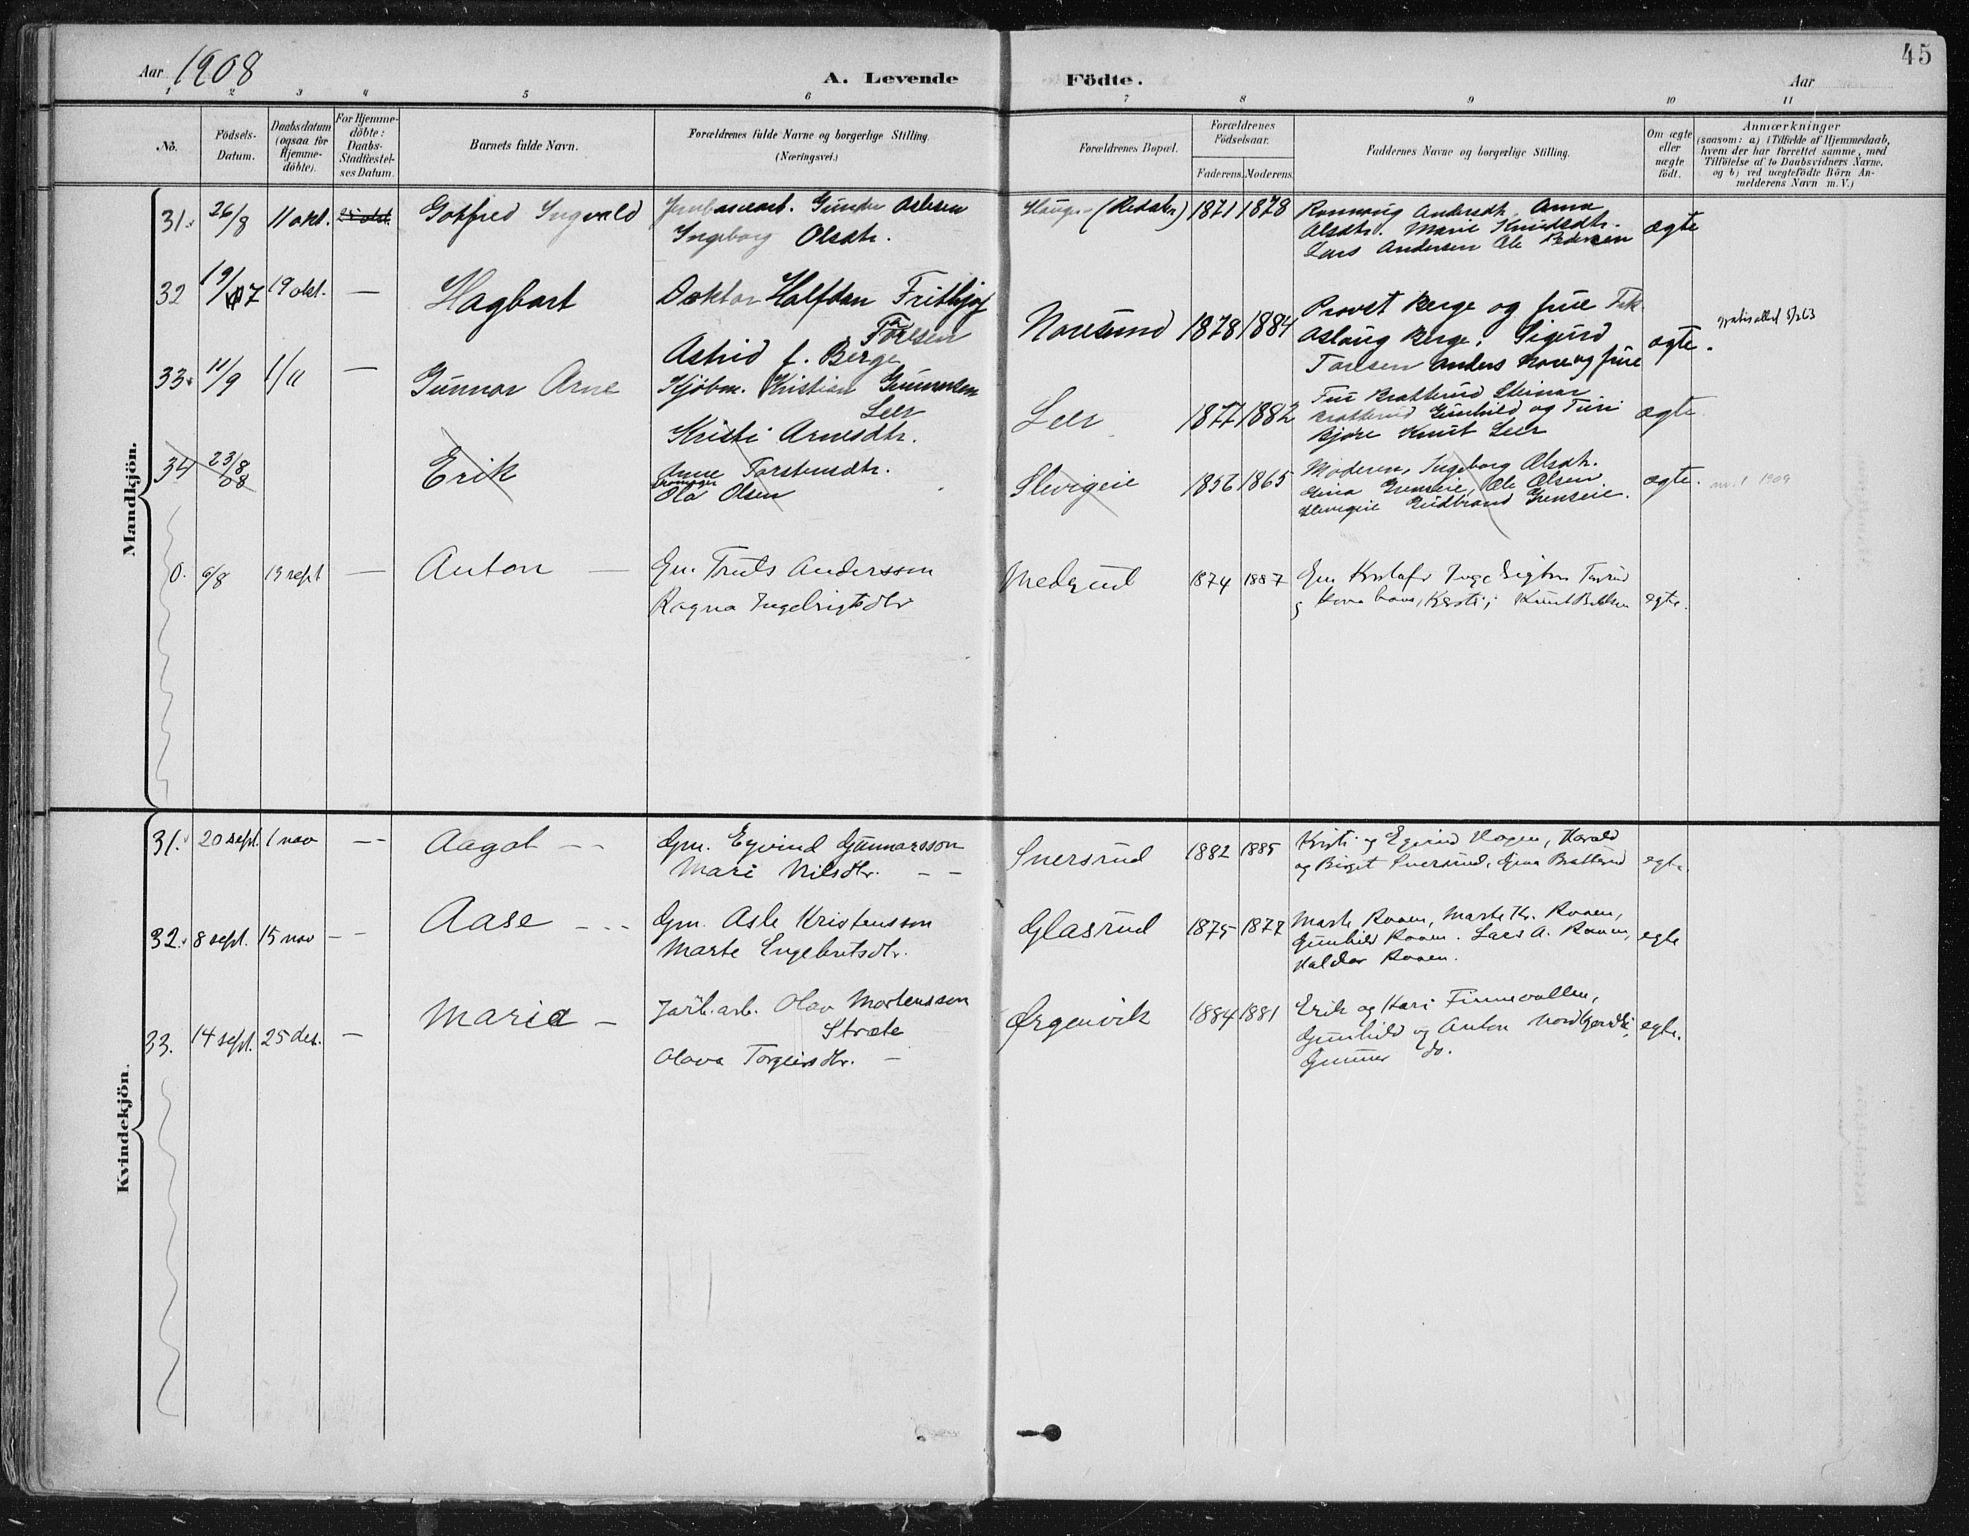 Aar 1908
A. Levende Födte.
Aar
45
1 2 3 4 5 6 7 8 9 10 11
No.
Födsels-
Datum.
Daabsdatum
(ogsaa for
Hjemme-
döbte).
For Hjemme-
döbte:
Daabs-
Stadfæstel-
ses Datum.
Barnets fulde Navn.
Forældrenes fulde Navne og borgerlige Stilling.
(Næringsvei.)
Forældrenes Bopæl.
Forældrenes
Födselsaar.
Faderens. Moderens.
Faddernes Navne og borgerlige Stilling.
Om ægte
eller
uægte
födt.
Anmærkninger
(saasom: a) i Tilfælde af Hjemmedaab,
hvem der har forrettet samme, med
Tilföielse af to Daabsvidners Navne,
og b) ved uægtefödte Börn An-
melderens Navn m. V.)
Mandkjön.
31. 26/8 11 okt. Gotfred Ingvald
Gunder Aslesen
Ingeborg Olsdtr.
1871 1878
Andersdtr. Anna
Olsdtr. Marie Knudsdtr.
Lars Andersen Ole Pedersen
ægte
32 19/7 19 okt. — Hagbart
Doktor Halfdan Frithjof
Torlsen
Astrid f. Berge
Noresund 1878 1884
Provst Berge og frue
Aslaug Berge, Sigurd
Torlsen Anders Nore og frue
ægte.
33. 11/9 1/11 — Gunnar Arne
Kjøbm. Kristian Gunnersen
Leer
Kristi Arnesdtr.
Leer 1877 1882
Gunhild og Turi
Bjøre Knut Leer
ægte
34 23/8 08 Erik
Anne Torstensdtr.
Ola Olsen
Slevigeie 1856 1865
Moderen, Ingeborg Olsdtr.
Grenseie, Ole Olsen
Slevigeie Gudbrand Grenseie.
ægte. nr. 1 1909
0. 6/8 13 sept — Anton —
Gm. Truls Andersson
Ragna Ingebrigtsdtr
Medgud 1874 1887
egte.
Kvindekjön.
31. 20 sept. 1 nov — Aagot —
Gm. Eyvind Gunnarsson
Mari Nilsdtr. — —
Snersrud 1882 1885
Kristi og Eyvind Hagen, Harald
og Birgit Snersrud, Bratterud
egte.
32. 8 sept. 15 nov — Aase —
Gm. Asle Kristensson
Marte Engebretsdtr.
Glasrud 1875 1877
Marte Roaen, Marte Kr. Roaen,
Gunhild Roaen. Lars A. Roaen,
Haldor Roaen.
egte
33. 14 sept. 25 des. — Maria —
Jarb.arb. Olav Mortensson
Stræte
Olava Torgeirsdtr. —
Ørgenvik 1884 1881
Erik og Kari Finnevollen,
Gunhild og Anton
Gunner do.
egte.